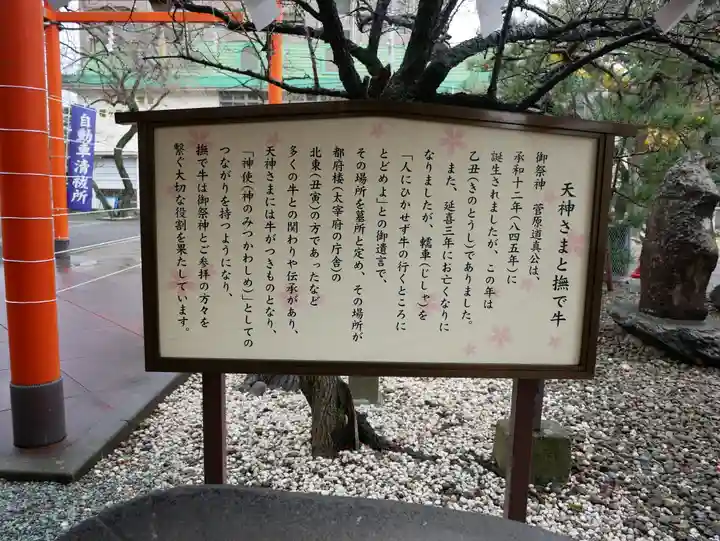 天神さまと撫で牛
御祭神　菅原道真公は、
承和十二年（八四五年）に
誕生されましたが、この年は
乙丑（きのとうし）でありました。
また、延喜三年にお亡くなりに
なりましたが、轜車（じしゃ）を
「人にひかせず牛の行くところに
とどめよ」との御遺言で、
その場所を墓所と定め、その場所が
都府楼（太宰府の庁舎）の
北東（丑寅）の方であったなど
多くの牛との関わりや伝承があり、
天神さまには牛がつきものとなり、
「神使（神のみつかわしめ）」としての
つながりを持つようになり、
撫で牛は御祭神とご参拝の方々を
繋ぐ大切な役割を果たしています。
自動車清祓所